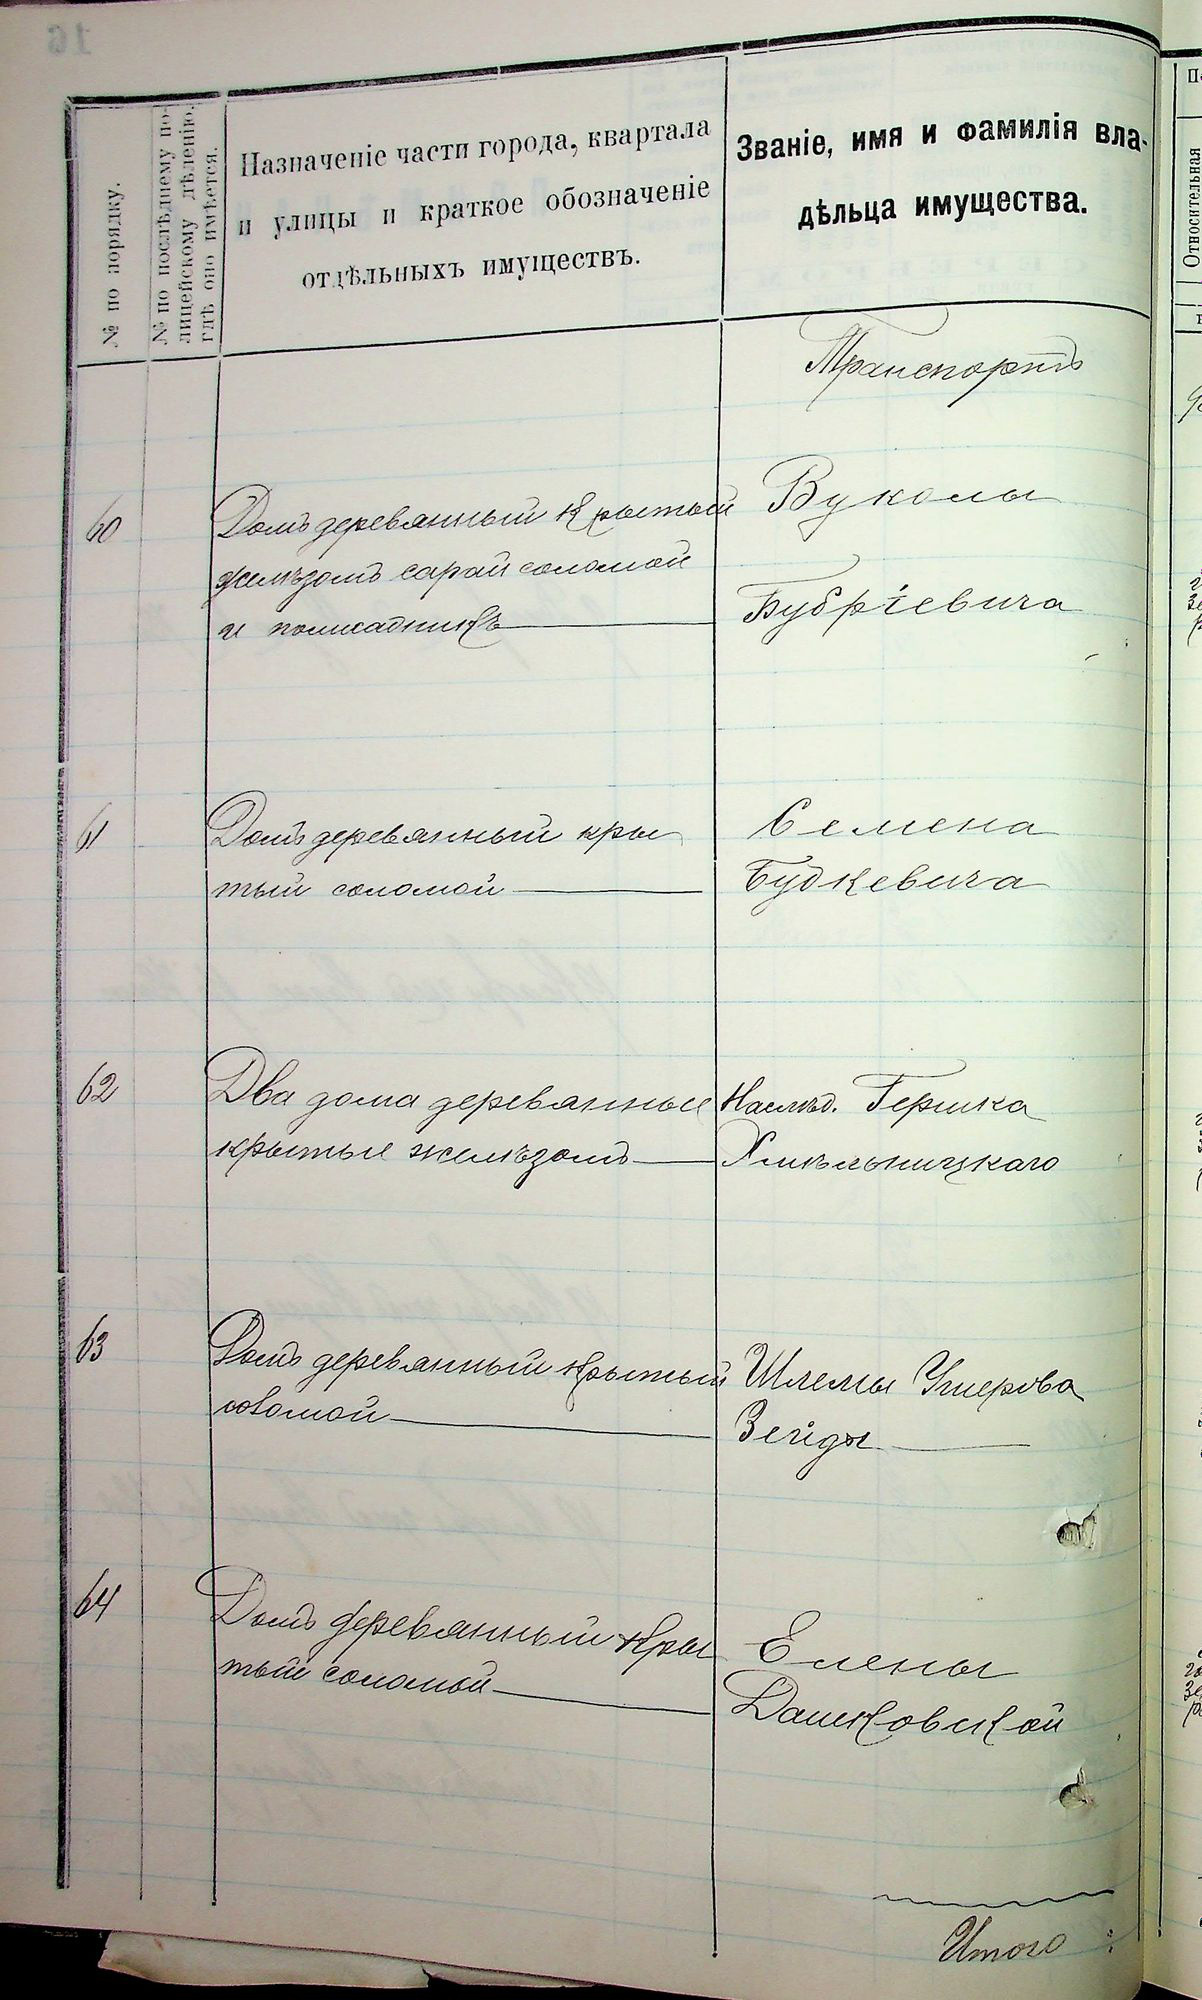 № по порядку.
№ по послѣднему по-
лицейскому дѣленію,
гдѣ оно имѣется.
Назначеніе части города, квартала
и улицы и краткое обозначеніе
отдѣльныхъ имуществъ.
Званіе, имя и фамилія вла-
дѣльца имущества.
Относительная
Транспортъ
60
Домъ деревянный крытый
желѣзомъ сарай соломой
и полисадникъ
Вуколы
Бубріевича
61
Домъ деревянный кры
тый соломой
Семена
Будкевича
62
Два дома деревянные
крытые желѣзомъ
Наслѣд. Гершка
Хмѣльницкаго
63
Домъ деревянный крытый
соломой
Шлемы Ушерова
Зейды
64
Домъ деревянный кры
тый соломой
Елены
Дашковской
Итого :